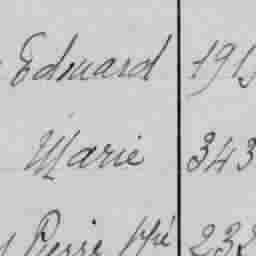 Edouard 191
Marie 343
Pierre 232